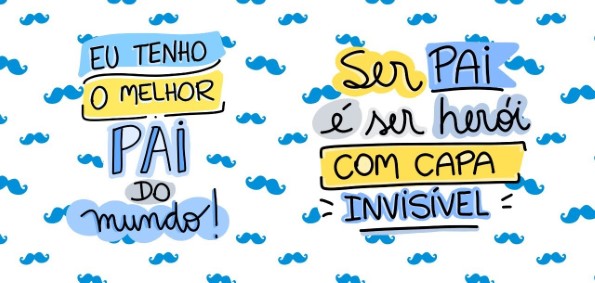 EU TENHO
O MELHOR
PAI
DO
mundo!
Ser PAI
é ser herói
COM CAPA
INVISÍVEL